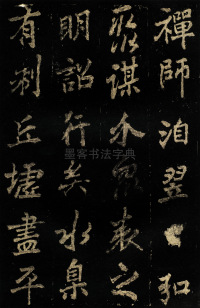 禪師洎翌弘
聚謀介衆表之
明詔行矣水臬
有制丘墟盡平
墨客书法字典